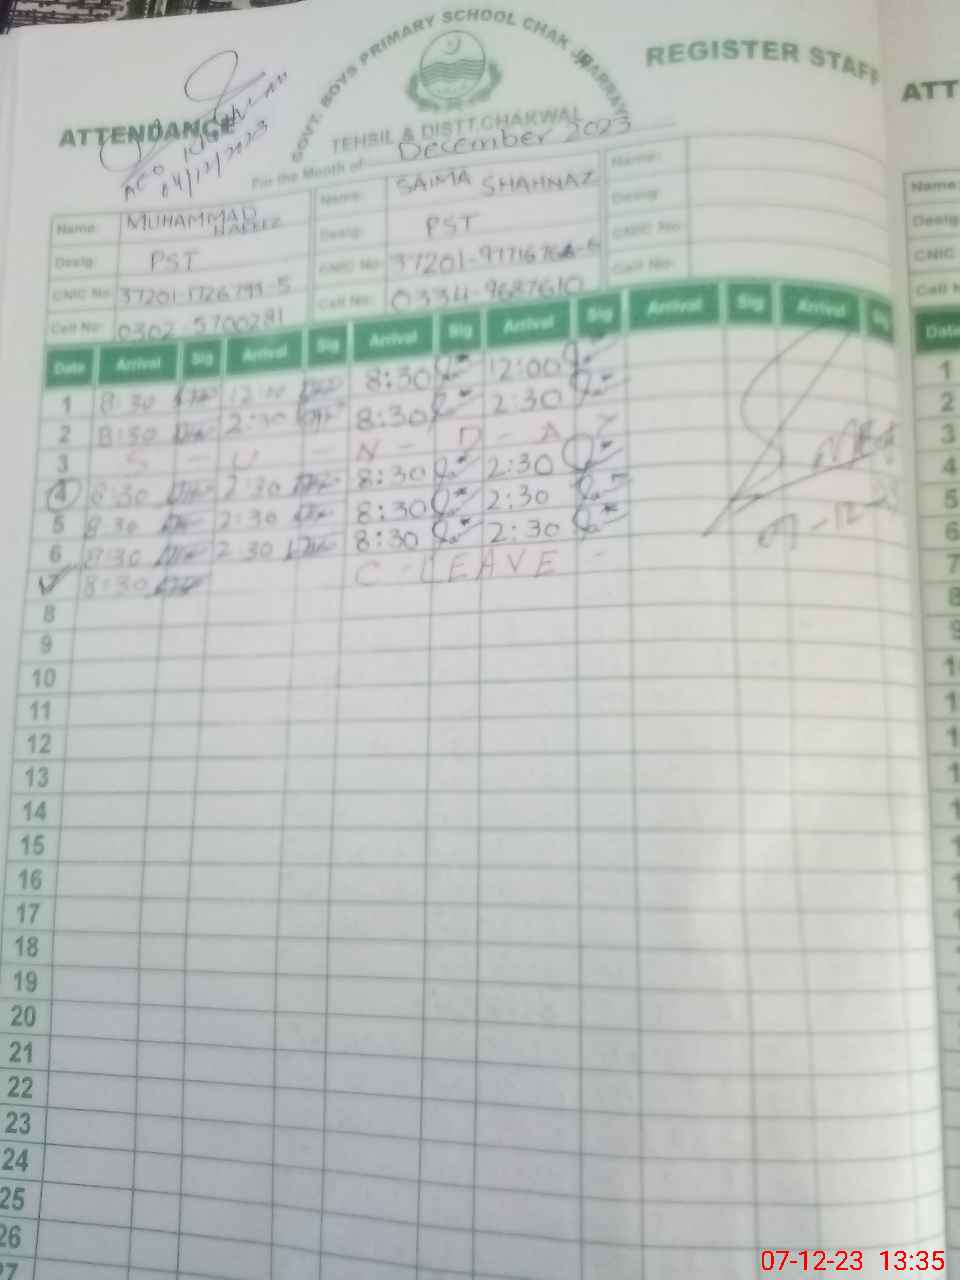 GOVT. BOYS PRIMARY SCHOOL CHAK
REGISTER STAFF
ATTENDANCE
TEHSIL & DISTT.CHAKWAL
For the Month of December 2023
AEO
04/12/2023
ATT
Name: MUHAMMAD Name: SAIMA SHAHNAZ Name:
Desig: PST Desig: PST Desig:
CNIC No: CNIC No: CNIC No:
Cell No: 0302-5700281 Cell No: 0334-9687610 Cell No:
Name:
Desig
CNIC
Cell N
Date Arrival Sig Arrival Sig Arrival Sig Arrival Sig Arrival Sig Arrival Sig
Date
1 8:30 12:00 8:30 12:00
2 8:30 2:30 8:30 2:30
3 S - U - N - D - A - Y
4 8:30 2:30 8:30 2:30
5 8:30 2:30 8:30 2:30
6 8:30 2:30 8:30 2:30
8:30 C-LEAVE -
8
9
10
11
12
13
14
15
16
17
18
19
20
21
22
23
24
25
26
27
1
2
3
4
5
6
7
8
9
07-12-23 13:35